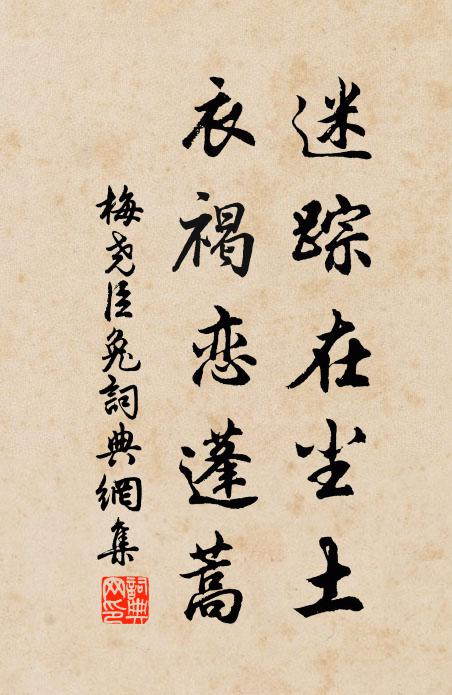 迷踪在尘土
衣褐恋蓬蒿
梅尧臣兔詞典網集
詞典网印